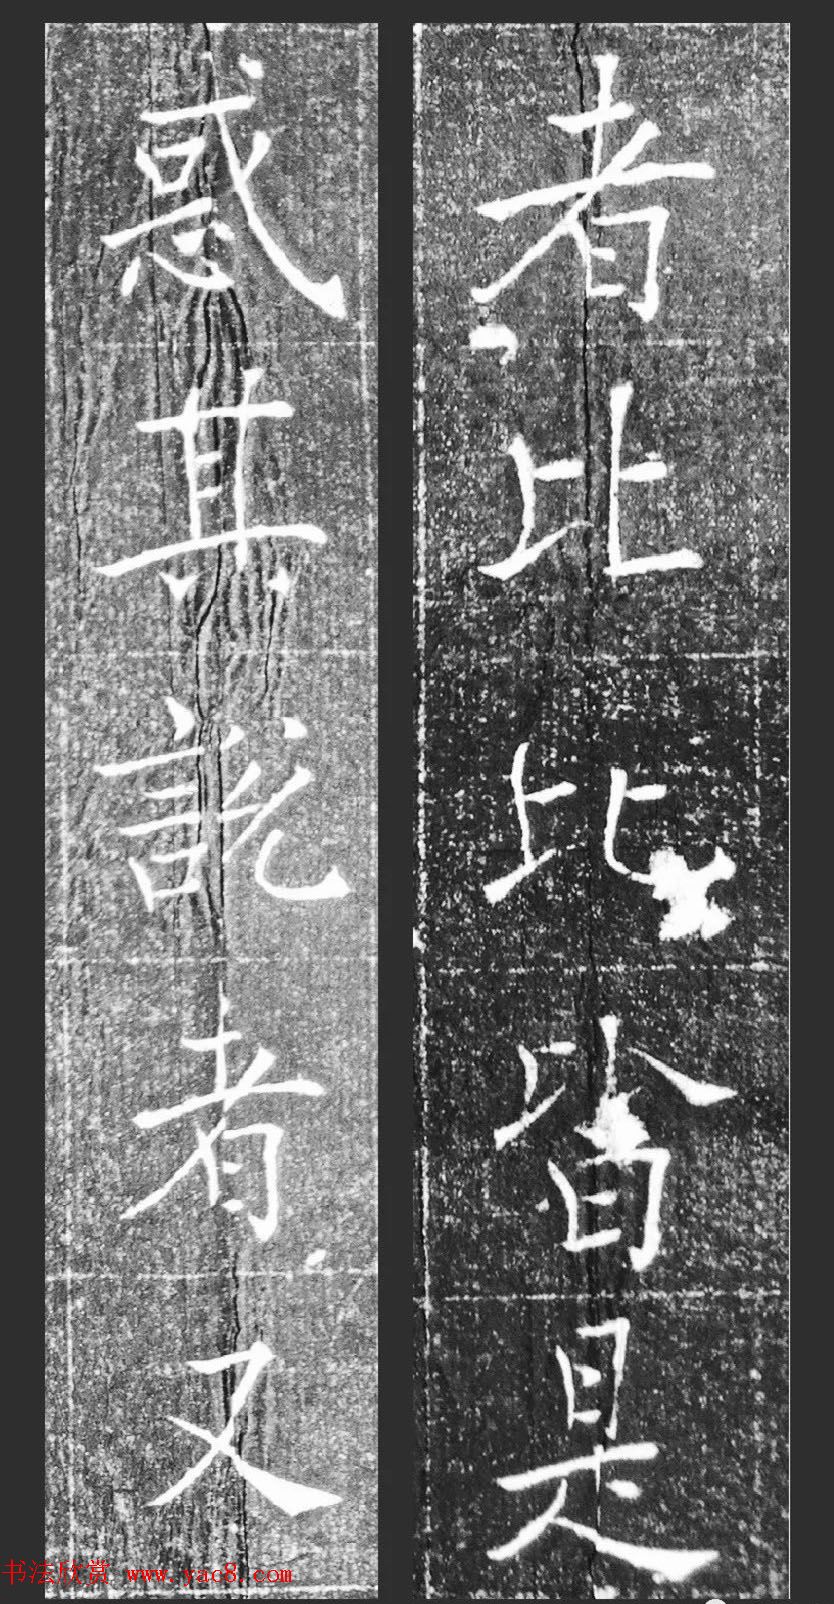 者比比皆是
惑其說者又
书法欣赏 www.yac8.com